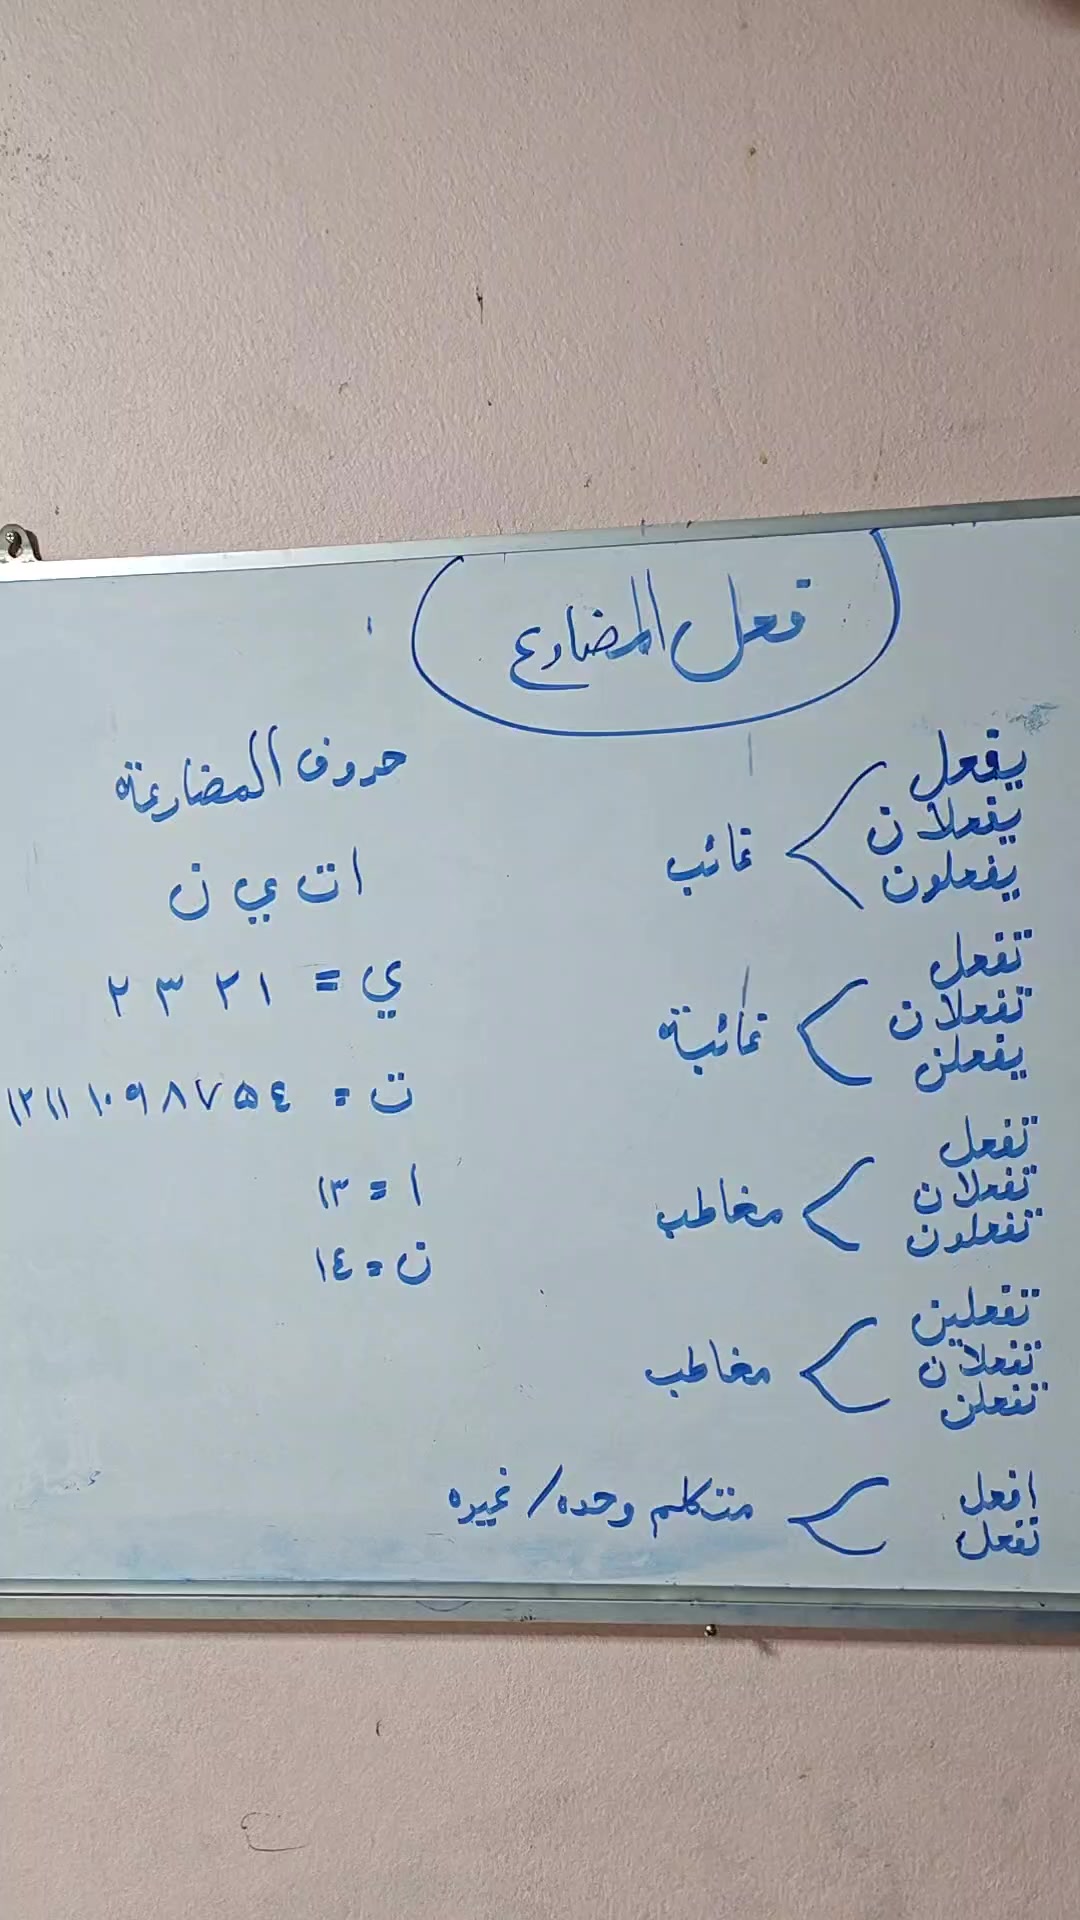 فعل المضارع
يفعل
يفعلان
يفعلون
غائب
تفعل
تفعلان
يفعلن
غائبة
تفعل
تفعلان
تفعلون
مخاطب
تفعلين
تفعلان
تفعلن
مخاطب
افعل
نفعل
متکلم وحده / غیره
حروف المضارعة
ا ت ي ن
ي = ١ ٢ ٣ ٢
ت = ٤ ۵ ٧ ٨ ٩ ١٠ ١١ ١٢
ا = ١٣
ن = ١٤